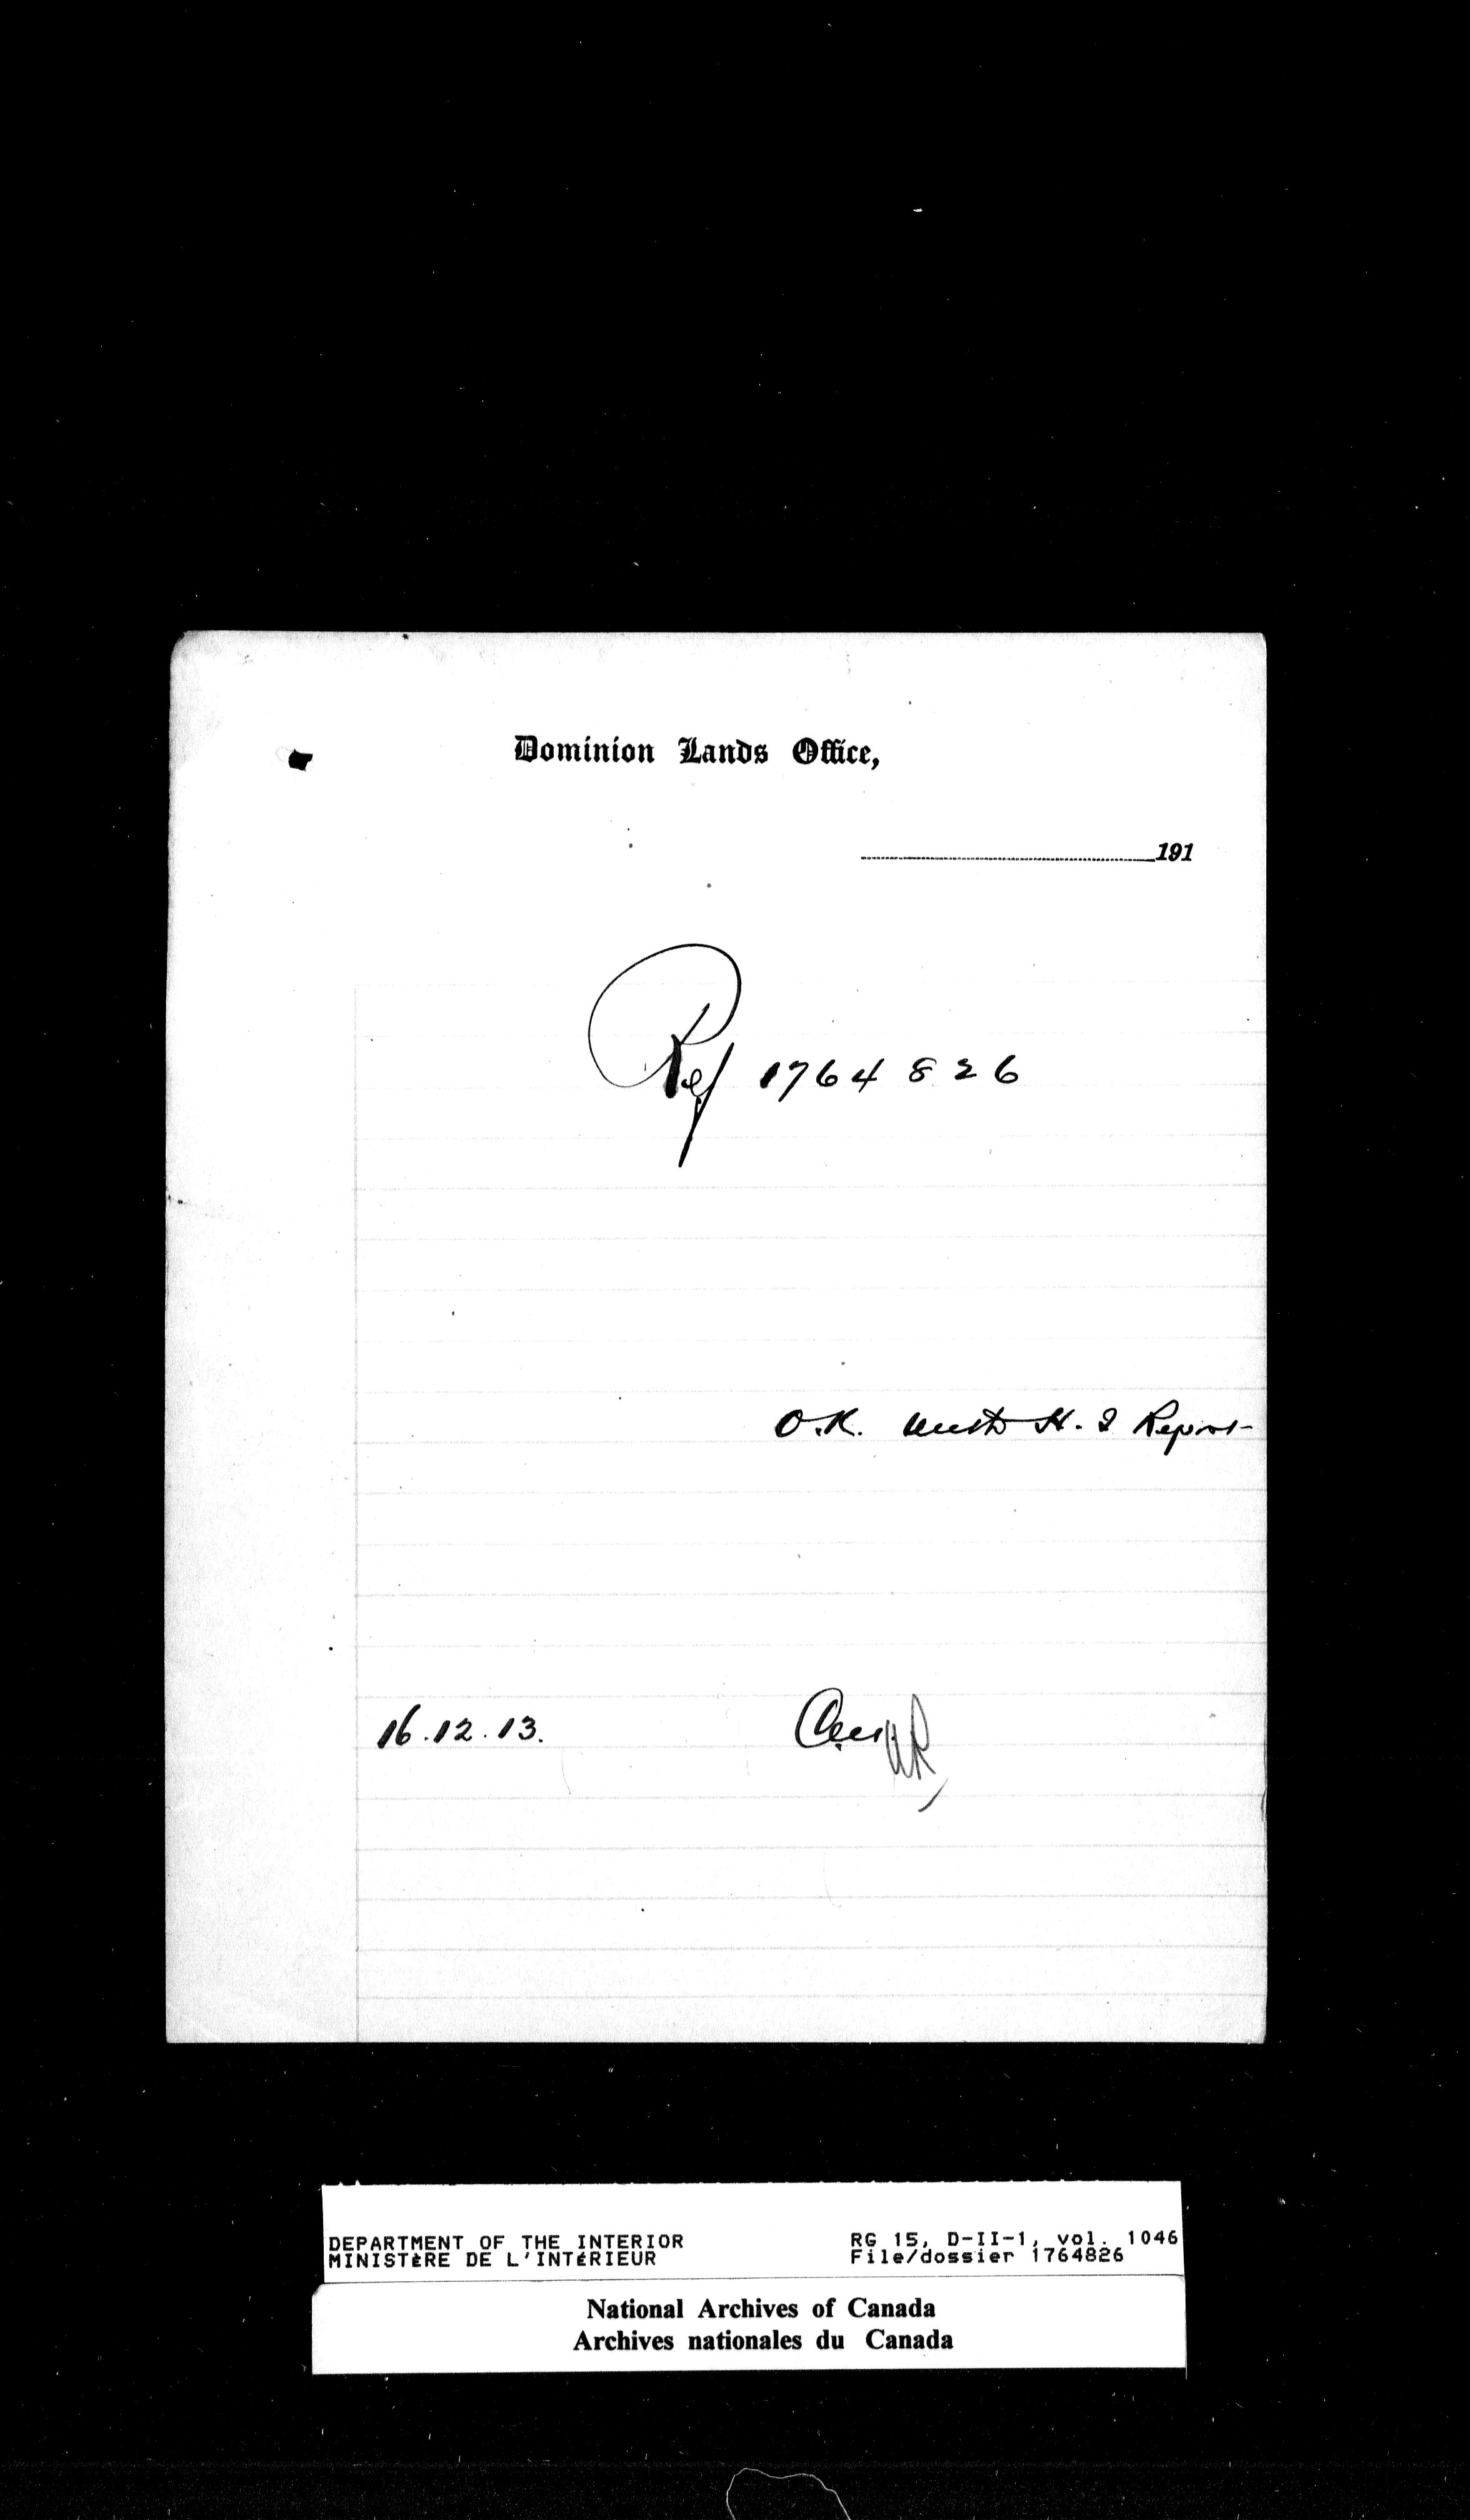 Dominion Lands Office,
191
Ref 1764826
O.K. with H. I Report
16.12.13.
DEPARTMENT OF THE INTERIOR RG 15, D-II-1, vol. 1046
MINISTÈRE DE L'INTÉRIEUR File/dossier 1764826
National Archives of Canada
Archives nationales du Canada